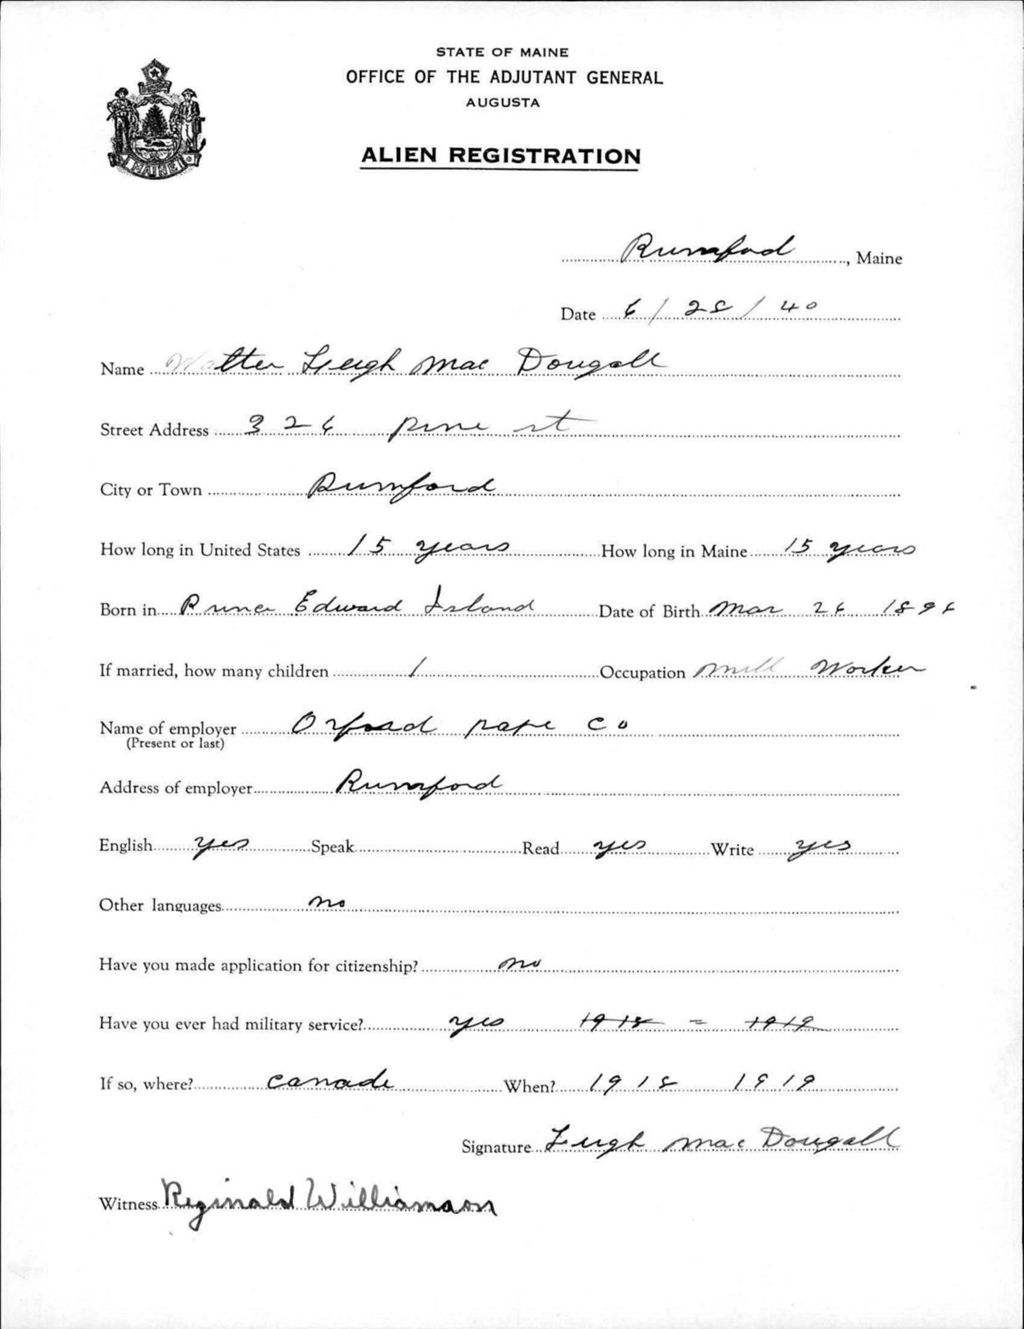 STATE OF MAINE
OFFICE OF THE ADJUTANT GENERAL
AUGUSTA
ALIEN REGISTRATION
MAINE
Rumford, Maine
Date 6/28/40
Name Walter Leigh Mac Dougall
Street Address 326 Pine st
City or Town Rumford
How long in United States 15 years How long in Maine 15 years
Born in Prince Edward Island Date of Birth Mar 26 1896
If married, how many children 1 Occupation Mill Worker
Name of employer Oxford pape Co
(Present or last)
Address of employer Rumford
English yes Speak Read yes Write yes
Other languages no
Have you made application for citizenship? no
Have you ever had military service? yes 1918 - 1919
If so, where? Canada When? 1918 1919
Signature Leigh Mac Dougall
Witness Reginald Williamson